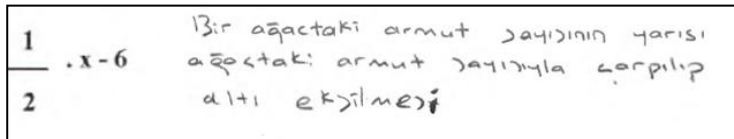 1/2 . x - 6
Bir ağactaki armut sayısının yarısı
ağactaki armut sayısıyla çarpılıp
altı eksilmesi